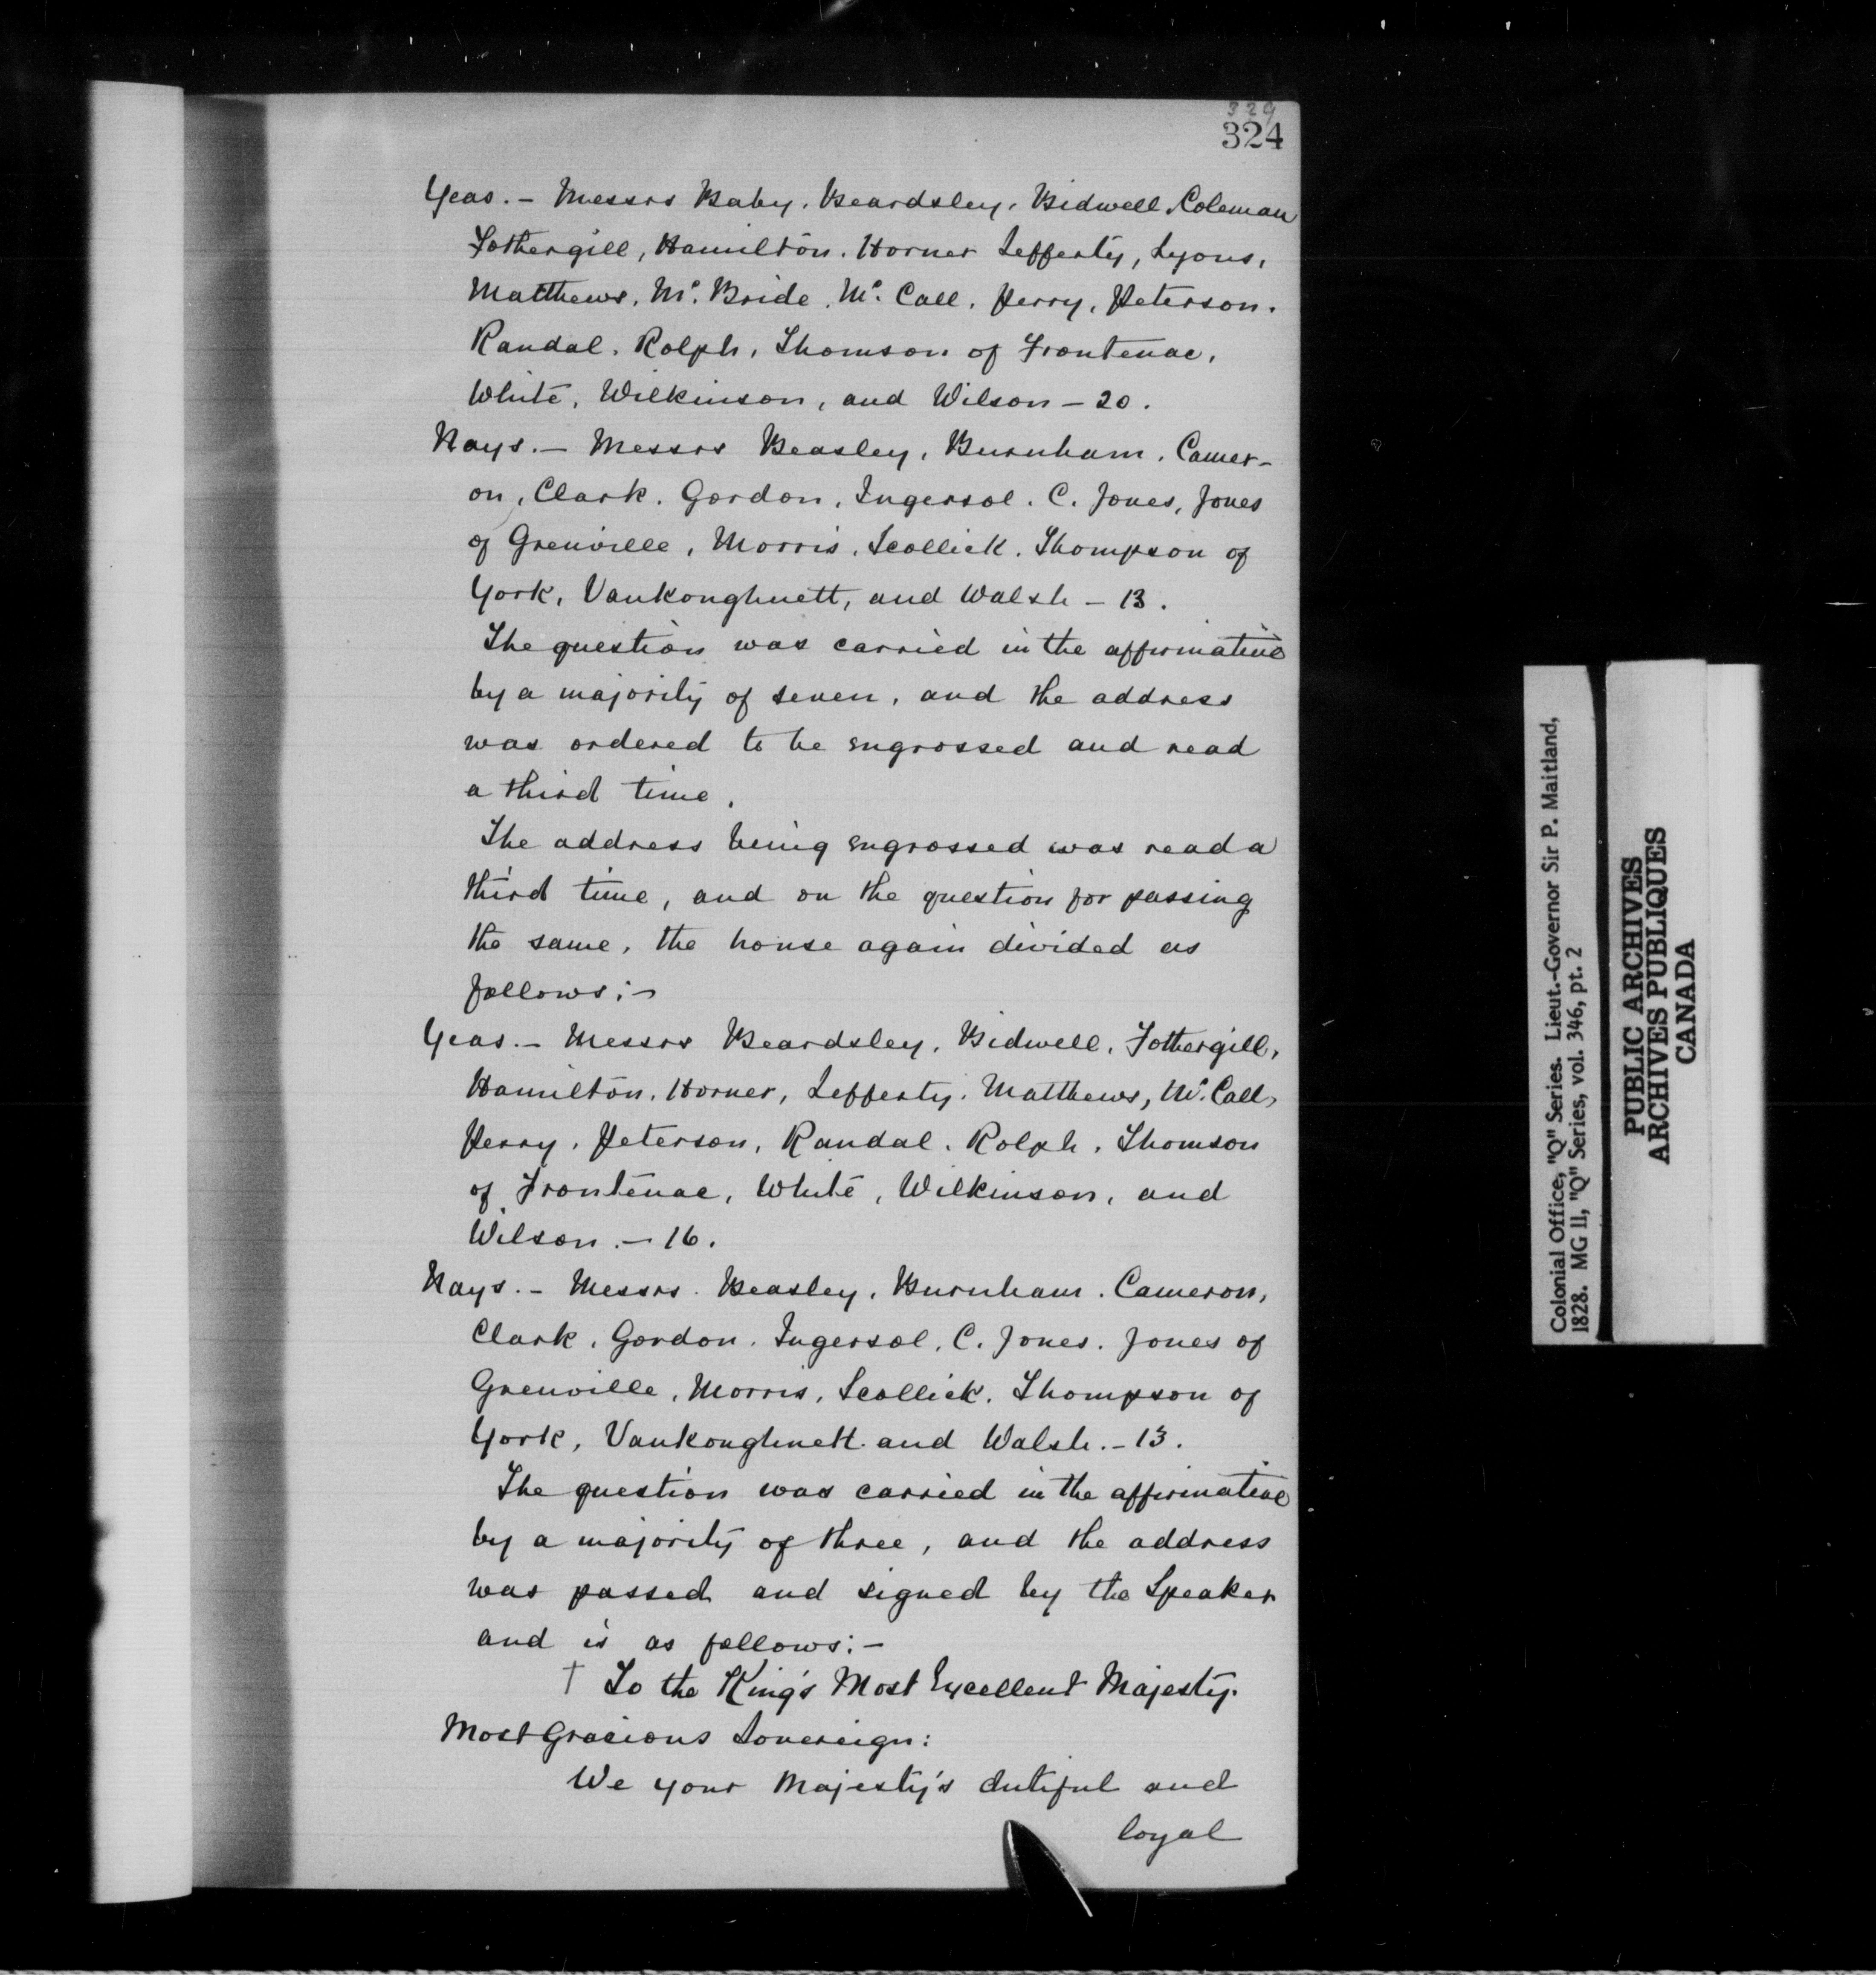 329
324
Yeas. - Messrs Baby, Beardsley, Bidwell, Coleman
Fothergill, Hamilton, Horner Lefferty, Lyons,
Matthews, Mc. Bride, Mc. Call, Perry, Peterson,
Randal, Rolph, Thomson of Frontenac,
White, Wilkinson, and Wilson - 20.
Nays. - Messrs Beasley, Burnham, Camer-
on, Clark, Gordon, Ingersol, C. Jones, Jones
of Grenville, Morris, Scollick, Thompson of
York, Vankoughnett, and Walsh - 13.
The question was carried in the affirmative
by a majority of seven, and the address
was ordered to be engrossed and read
a third time.
The address being engrossed was read a
third time, and on the question for passing
the same, the house again divided as
follows:-
Yeas. - Messrs Beardsley, Bidwell, Fothergill,
Hamilton, Horner, Lefferty, Matthews, Mc. Call,
Perry, Peterson, Randal, Rolph, Thomson
of Frontenac, White, Wilkinson, and
Wilson. - 16.
Nays. - Messrs. Beasley, Burnham, Cameron,
Clark, Gordon, Ingersol, C. Jones, Jones of
Grenville, Morris, Scollick, Thompson of
York, Vankoughnett and Walsh. - 13.
The question was carried in the affirmative
by a majority of three, and the address
was passed and signed by the Speaker
and is as follows:-
† To the King's Most Excellent Majesty.
Most Gracious Sovereign:
We your Majesty's dutiful and
loyal
Colonial Office, "Q" Series. Lieut.-Governor Sir P. Maitland,
1828. MG 11, "Q" Series, vol. 346, pt. 2
PUBLIC ARCHIVES
ARCHIVES PUBLIQUES
CANADA